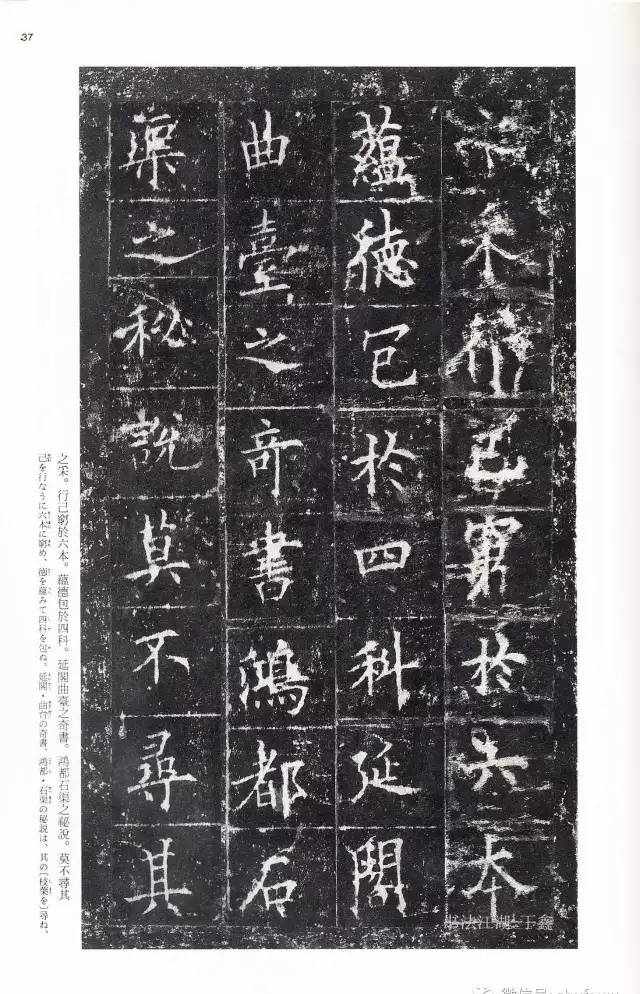 37
之宋。行己窮於六本。蘊德包於四科。延閣曲臺之奇書。鴻都石渠之秘說。莫不尋其
己を行なうに六本に窮め、德を蘊みて四科を包ね、延閣・曲台の奇書、鴻都・石渠の秘説は、其の〔枝葉を〕尋ね、
之宋行己窮於六本
蘊德包於四科延閣
曲臺之奇書鴻都石
渠之秘說莫不尋其
书法江湖 王鑫